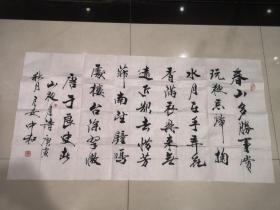 春山多勝事賞
玩夜忘歸掬
水月在手弄花
香滿衣興來無
遠近欲去惜芳
菲南望鐘鳴
處樓台深翠微
唐于良史春
山夜月詩庚寅
秋月中和